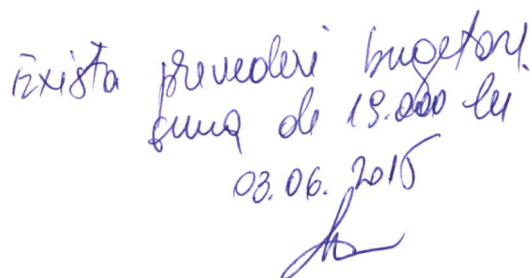 Există prevederi bugetare
suma de 19.000 lei
03.06.2015